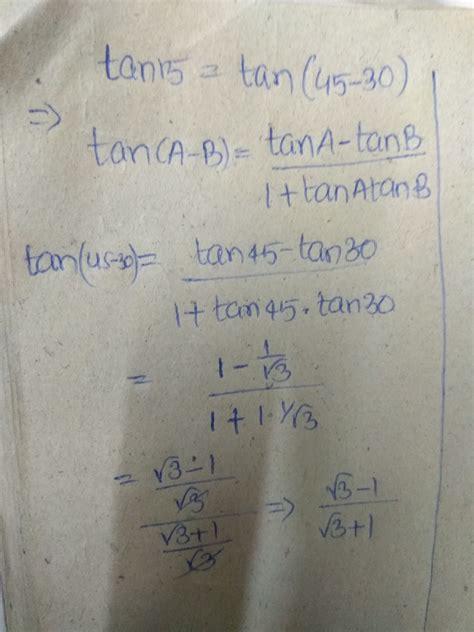 tan15 = tan(45-30)
⇒
tan(A-B) = tanA-tanB / 1+tanAtanB
tan(45-30) = tan45-tan30 / 1+tan45.tan30
= 1 - 1/√3 / 1 + 1.1/√3
= √3-1/√3 / √3+1/√3 ⇒ √3-1 / √3+1